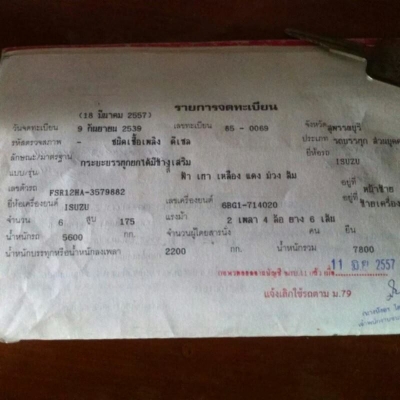 (18 มีนาคม 2557) รายการจดทะเบียน
วันจดทะเบียน 9 กันยายน 2539 เลขทะเบียน 85 - 0069 จังหวัด สุพรรณบุรี
รหัสตรวจสภาพ - ชนิดเชื้อเพลิง ดีเซล ประเภท รถบรรทุก ส่วนบุคคล
ลักษณะ/มาตรฐาน กระบะบรรทุกยกได้มีข้างเสริม ยี่ห้อรถ ISUZU
แบบ/รุ่น ฟ้า เทา เหลือง แดง ม่วง ส้ม
เลขตัวรถ FSR12HA-3579882 อยู่ที่ หน้าซ้าย
ยี่ห้อเครื่องยนต์ ISUZU เลขเครื่องยนต์ 6BG1-714020 อยู่ที่ ซ้ายเครื่อง
จำนวน 6 สูบ 175 แรงม้า 2 เพลา 4 ล้อ ยาง 6 เส้น
น้ำหนักรถ 5600 กก. จำนวนผู้โดยสารนั่ง คน ยืน
น้ำหนักบรรทุกหรือน้ำหนักลงเพลา 2200 กก. น้ำหนักรวม 7800
2557
แจ้งเลิกใช้รถตาม ม.79